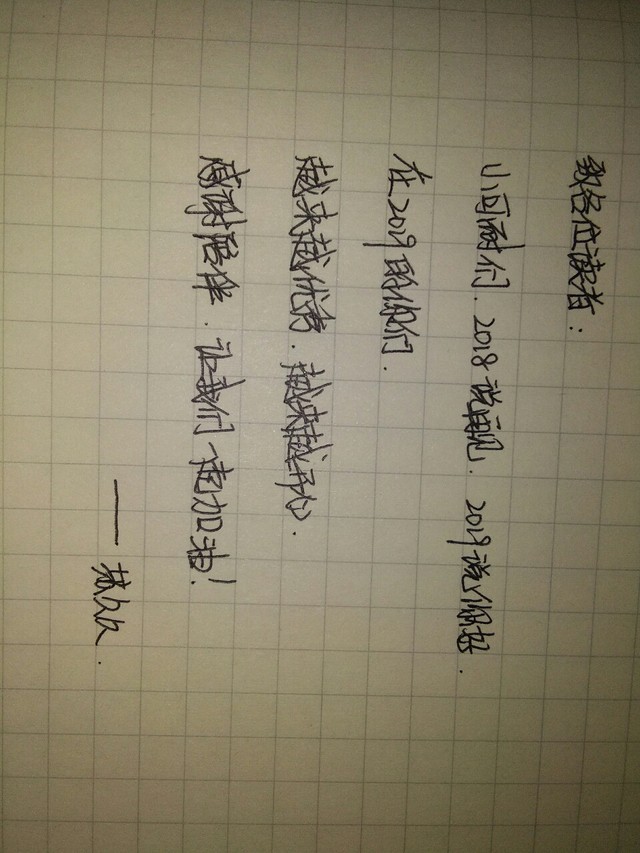 致各位读者:
小可耐们.2018说再见.2019说你好.
在2019的你们.
越来越优秀.越来越开心.
感谢陪伴.让我们一起加油!
——苏久久.